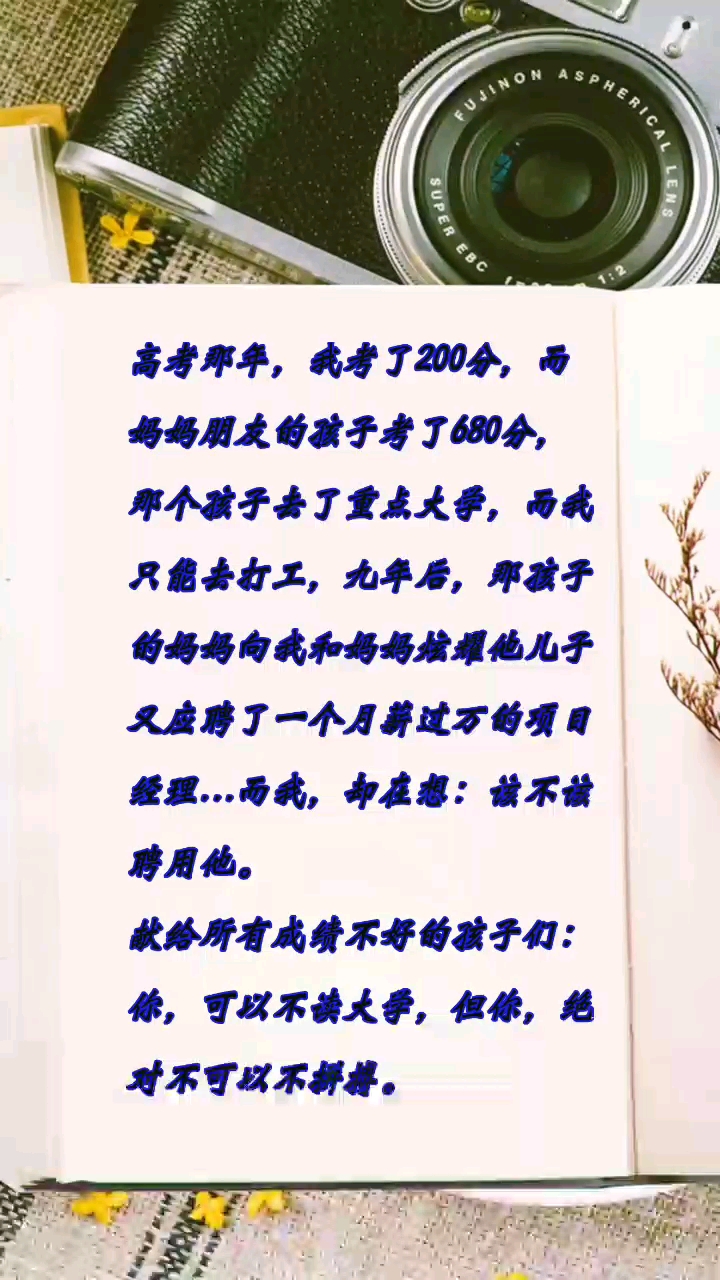 FUJINON ASPHERICAL LENS
SUPER EBC
1:2
高考那年，我考了200分，而
妈妈朋友的孩子考了680分，
那个孩子去了重点大学，而我
只能去打工，九年后，那孩子
的妈妈向我和妈妈炫耀他儿子
又应聘了一个月薪过万的项目
经理...而我，却在想：该不该
聘用他。
献给所有成绩不好的孩子们：
你，可以不读大学，但你，绝
对不可以不拼搏。